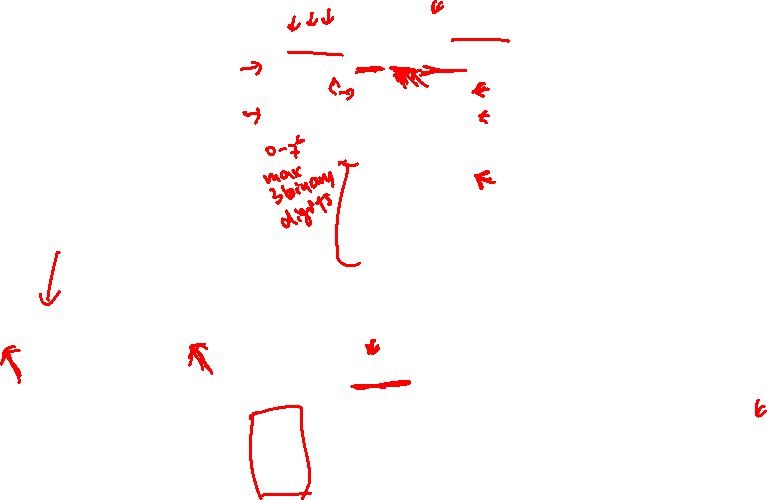 0-7
max
3 binary
digits